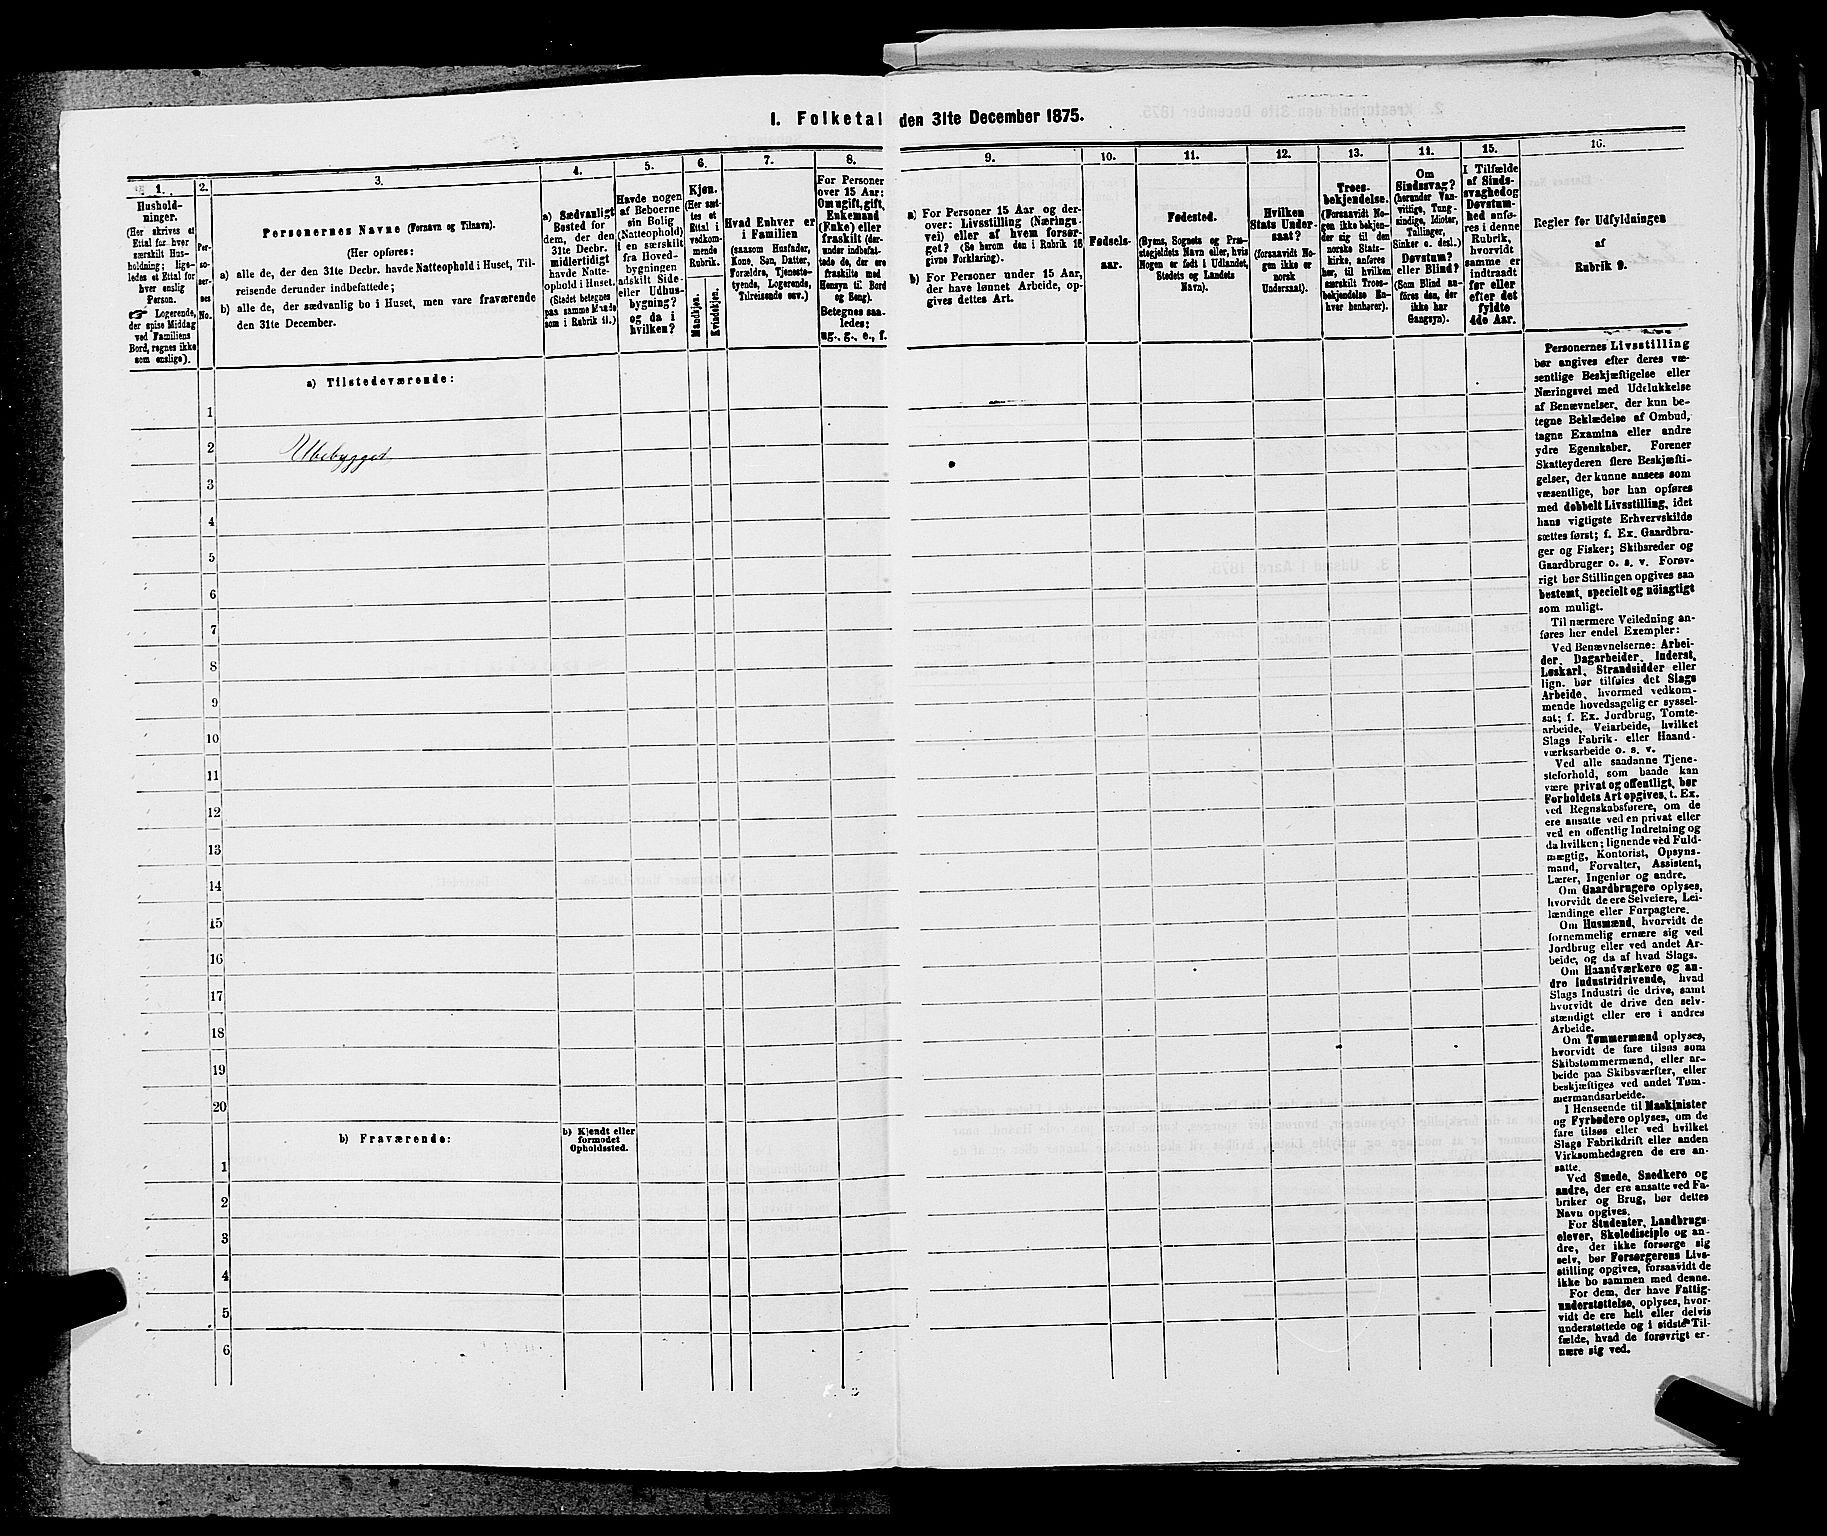 I. Folketal den 31te December 1875.
1.
Hushold-
ninger.
(Her skrives et
Ettal for hver
særskilt Hus-
holdning; lige-
ledes et Ettal for
hver enslig
Person.
☞ Logerende,
der spise Middag
ved Familiens
Bord, regnes ikke
som enslige).
2.
Per-
so-
ser-
nes
No.
3.
Personernes Navne (Fornavn og Tilnavn).
(Her opføres:
a) alle de, der den 31te Decbr. havde Natteophold i Huset, Til-
reisende derunder indbefattede;
b) alle de, der sædvanlig bo i Huset, men vare fraværende
den 31te December.
4.
a) Sædvanligt
Bosted for
dem, der den
31te Decbr.
midlertidigt
havde Natte-
ophold i Huset.
(Stedet betegnes
paa samme Maade
som i Rubrik 11.)
5.
Havde nogen
af Beboerne
sin Bolig
(Natteophold)
i en særskilt
fra Hoved-
bygningen
adskilt Side-
eller Udhus-
bygning?
og da i
hvilken?
6.
Kjøn.
(Her sæt-
tes et
Ettal i
vedkom-
mende
Rubrik.
Mandkjøn.
Kvindekjøn.
7.
Hvad Enhver er
i Familien
(saasom Husfader,
Kone, Søn, Datter,
Forældre, Tjeneste-
tyende, Logerende,
Tilreisende osv.)
8.
For Personer
over 15 Aar:
Om ugift, gift,
Enkemand
(Enke) eller
fraskilt (der-
under indbefat-
tede de, der ere
fraskilte med
Hensyn til Bord
og Seng).
Betegnes saa-
ledes:
ug., g., e., f.
9.
a) For Personer 15 Aar og der-
over: Livsstilling (Nærings-
vei) eller af hvem forsør-
get? (Se herom den i Rubrik 16
givne Forklaring).
b) For Personer under 15 Aar,
der have lønnet Arbeide, op-
gives dettes Art.
10.
Fødsels-
aar.
11.
Fødested.
(Byens, Sognets og Præ-
stegjeldets Navn eller, hvis
Nogen er født i Udlandet,
Stedets og Landets
Navn).
12.
Hvilken
Stats Under-
saat?
(forsaavidt No-
gen ikke er
norsk
Undersaat).
13.
Troes-
bekjendelse.
(Forsaavidt No-
gen ikke bekjen-
der sig til den
norske Stats-
kirke, anføres
her, til hvilken
særskilt Troes-
bekjendelse En-
hver henhører).
14.
Om
Sindssvag?
(herunder Van-
vittige, Tung-
sindige, Idioter,
Tullinger,
Sinker o. desl.)
Døvstum?
eller Blind?
(Som Blind an-
føres den, der
ikke har
Gangsyn).
15.
I Tilfælde
af Sinds-
svaghedog
Døvstum-
hed anfø-
res i denne
Rubrik,
hvorvidt
samme er
indtraadt
før eller
efter det
fyldte
4de Aar.
16.
Regler for Udfyldningen
af
Rubrik 9.
a) Tilstedeværende:
1
2 Ubebygget
3
4
5
6
7
8
9
10
11
12
13
14
15
16
17
18
19
20
b) Fraværende:
b) Kjendt eller
formodet
Opholdssted.
1
2
3
4
5
6
Personernes Livsstilling
bør angives efter deres væ-
sentlige Beskjæftigelse eller
Næringsvei med Udelukkelse
af Benævnelser, der kun be-
tegne Beklædelse af Ombud,
tagne Examina eller andre
ydre Egenskaber. Forener
Skatteyderen flere Beskjæfti-
gelser, der kunne ansees som
væsentlige, bør han opføres
med dobbelt Livsstilling, idet
hans vigtigste Erhvervskilde
sættes først; f. Ex. Gaardbru-
ger og Fisker; Skibsreder og
Gaardbruger o. s. v. Forøv-
rigt bør Stillingen opgives saa
bestemt, specielt og nöiagtigt
som muligt.
Til nærmere Veiledning an-
føres her endel Exempler:
Ved Benævnelserne: Arbei-
der, Dagarbeider, Inderst,
Løskarl, Strandsidder eller
lign. bør tilføies det Slags
Arbeide, hvormed vedkom-
mende hovedsagelig er syssel-
sat; f. Ex. Jordbrug, Tomte-
arbeide, Veiarbeide, hvilket
Slags Fabrik- eller Haand-
værksarbeide o. s. v.
Ved alle saadanne Tjene-
steforhold, som baade kan
være privat og offentligt, bør
Forholdets Art opgives, t. Ex.
ved Regnskabsførere, om de
ere ansatte ved en privat eller
ved en offentlig Indretning og
da hvilken; lignende ved Fuld-
mægtig, Kontorist, Opsyns-
mand, Forvalter, Assistent,
Lærer, Ingeniør og andre.
Om Gaardbrugere oplyses,
hvorvidt de ere Selveiere, Lei-
lændinge eller Forpagtere.
Om Husmænd, hvorvidt de
fornemmelig ernære sig ved
Jordbrug eller ved andet Ar-
beide, og da af hvad Slags.
Om Haandværkere og an-
dre Industridrivende, hvad
Slags Industri de drive, samt
hvorvidt de drive den selv-
stændigt eller ere i andres
Arbeide.
Om Tømmermænd oplyses,
hvorvidt de fare tilsøs som
Skibstømmermænd, eller ar-
beide paa Skibsværfter, eller
beskjæftiges ved andet Tøm-
mermandsarbeide.
I Henseende til Maskinister
og Fyrbødere oplyses, om de
fare tilsøs eller ved hvilket
Slags Fabrikdrift eller anden
Virksomhedsgren de ere an-
satte.
Ved Smede, Snedkere og
andre, der ere ansatte ved Fa-
briker og Brug, bør dettes
Navn opgives.
For Studenter, Landbrugs-
elever, Skoledisciple og an-
dre, der ikke forsørge sig
selv, bør Forsørgerens Livs-
stilling opgives, forsaavidt de
ikke bo sammen med denne.
For dem, der have Fattig-
understøttelse, oplyses, hvor-
vidt de ere helt eller delvis
understøttede og i sidste Til-
fælde, hvad de forøvrigt er-
nære sig ved.